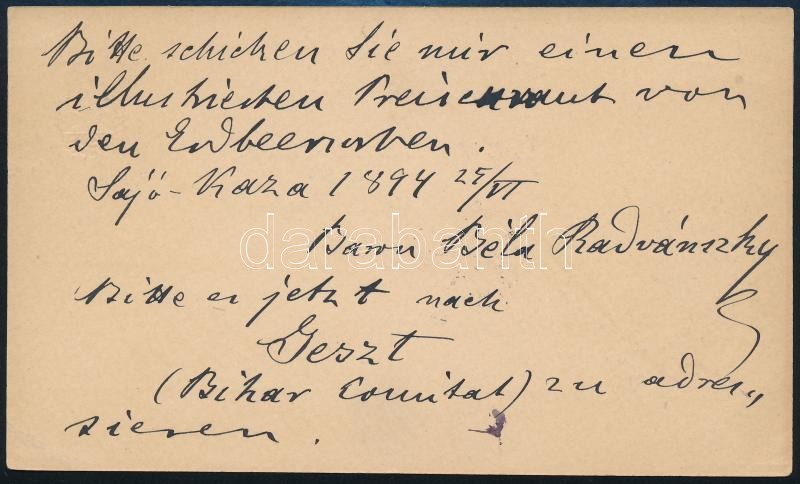 Bitte schicken Sie mir einen
illustrierten Preiscourant von
den Erdbeersorten.
Sajó-Kaza 1894 25/VI
Baron Béla Radvánszky
Bitte es jetzt nach
Geszt
(Bihar Comitat) zu adres„
sieren.
darabanth